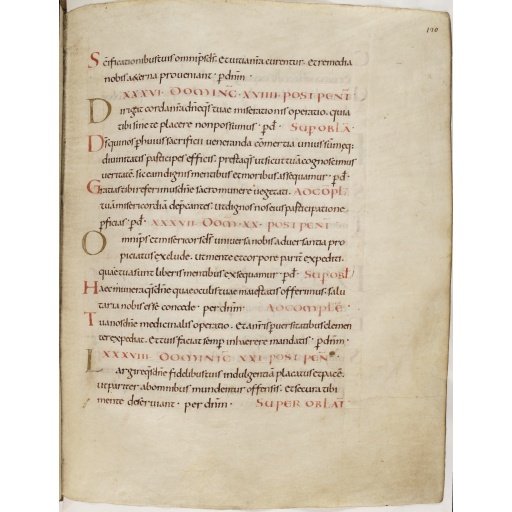 Scificationibus tuis omnips ds. et uitia nra curentur. et remedia
nobis aeterna proueniant. p dnm.
XXXVI DOMINC XVIIII POST PENT
Dirigat corda nra dne qs tuae miserationis operatio. quia
tibi sine te placere non possumus. pd. SUP OBLA.
Ds qui nos p huius sacrificii ueneranda comertia unius summeq;
diuinitatis participes efficis. presta qs ut sicut tuā cognoscimus
ueritatē. sic eam dignis mentibus et moribus assequamur. pd.
Gratias tibi referimus dne sacro munere uegetati. AD COPL.
tuā misericordiā deprecantes. ut dignos nos eius participatione
pficias. pd. XXXVII DOM XX POST PENT
Omnips et misericors ds uniuersa nobis aduersantia pro
pitiatus exclude. ut mente et corpore pariter expediti.
quae tua sunt liberis mentibus exsequamur. pd. SUP OBL
Haec munera qs dne quae oculis tuae maiestatis offerimus. salu
taria nobis esse concede. per dnm. AD COMPLE.
Tua nos dne medicinalis operatio. et a nris peruersitatibus clemen
ter expediat. et tuis faciat semp inhaerere mandatis. p dnm.
XXXVIII DOMINIC XXI POST PEN
Largire qs dne fidelibus tuis indulgentiā placatus et pacē.
ut pariter ab omnibus mundentur offensis. et secura tibi
mente deseruiant. per dnm. SUPER OBLAT